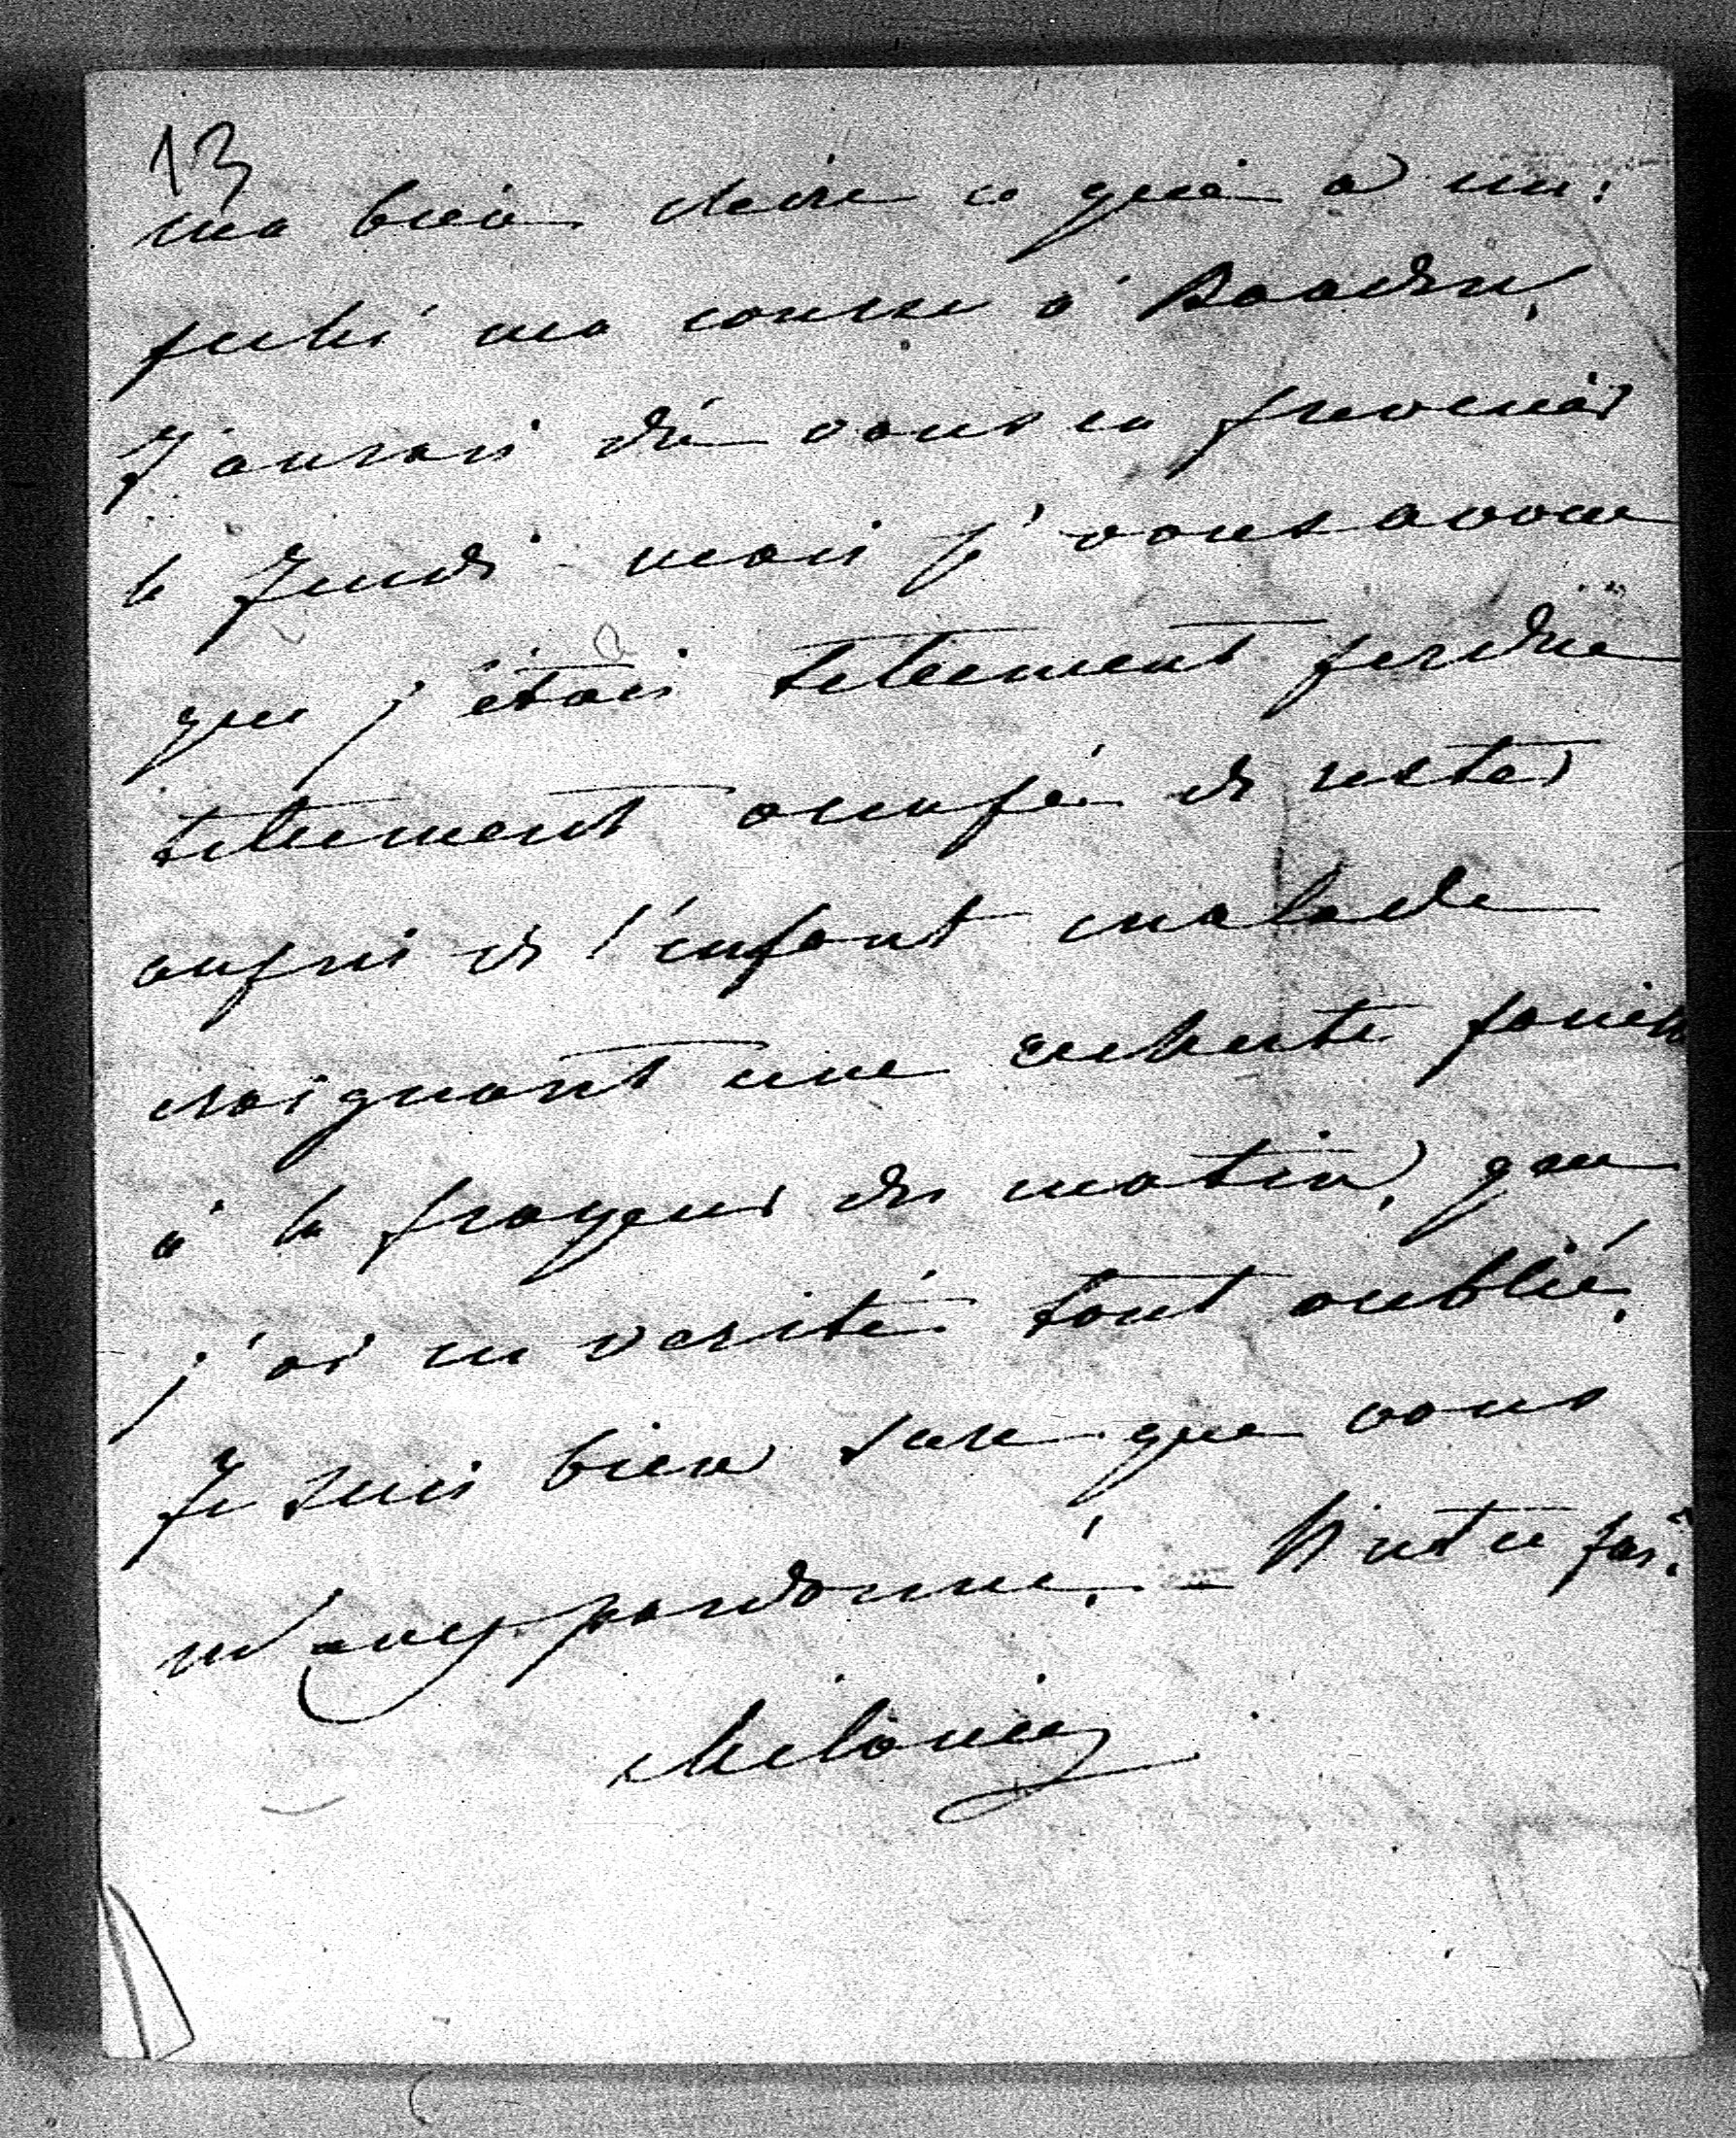 13
ma bien chère ce qui a em.
pêché ma course à Baaden.
J'aurais dû vous en prevenir
le Jeudi mais j' vous avoue
que j'étais tellement perdue
tellement occupée de rester
auprès de l'enfant malade
craignant une rechute
à la frayeur du matin, que
j'ai en verité tout oublié.
Je suis bien sure que vous
m'avez pardonné! - N'est ce pas.
Melanie